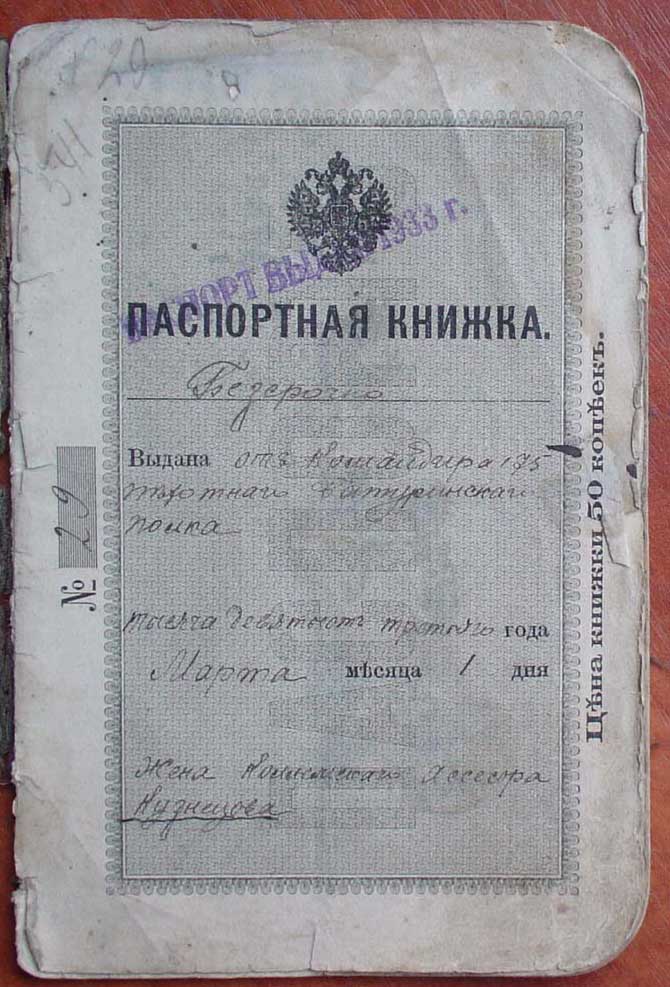 № 29
541
ПАСПОРТЪ ВЫДАНЪ 1933 г.
ПАСПОРТНАЯ КНИЖКА.
Безсрочно
Выдана отъ Командира 175
пѣхотнаго Батуринскаго
полка
тысяча девятьсотъ третьяго года
Марта мѣсяца 1 дня
Жена Коллежскаго Ассесора
Кузнецова
№ 29
Цѣна книжки 50 копѣекъ.